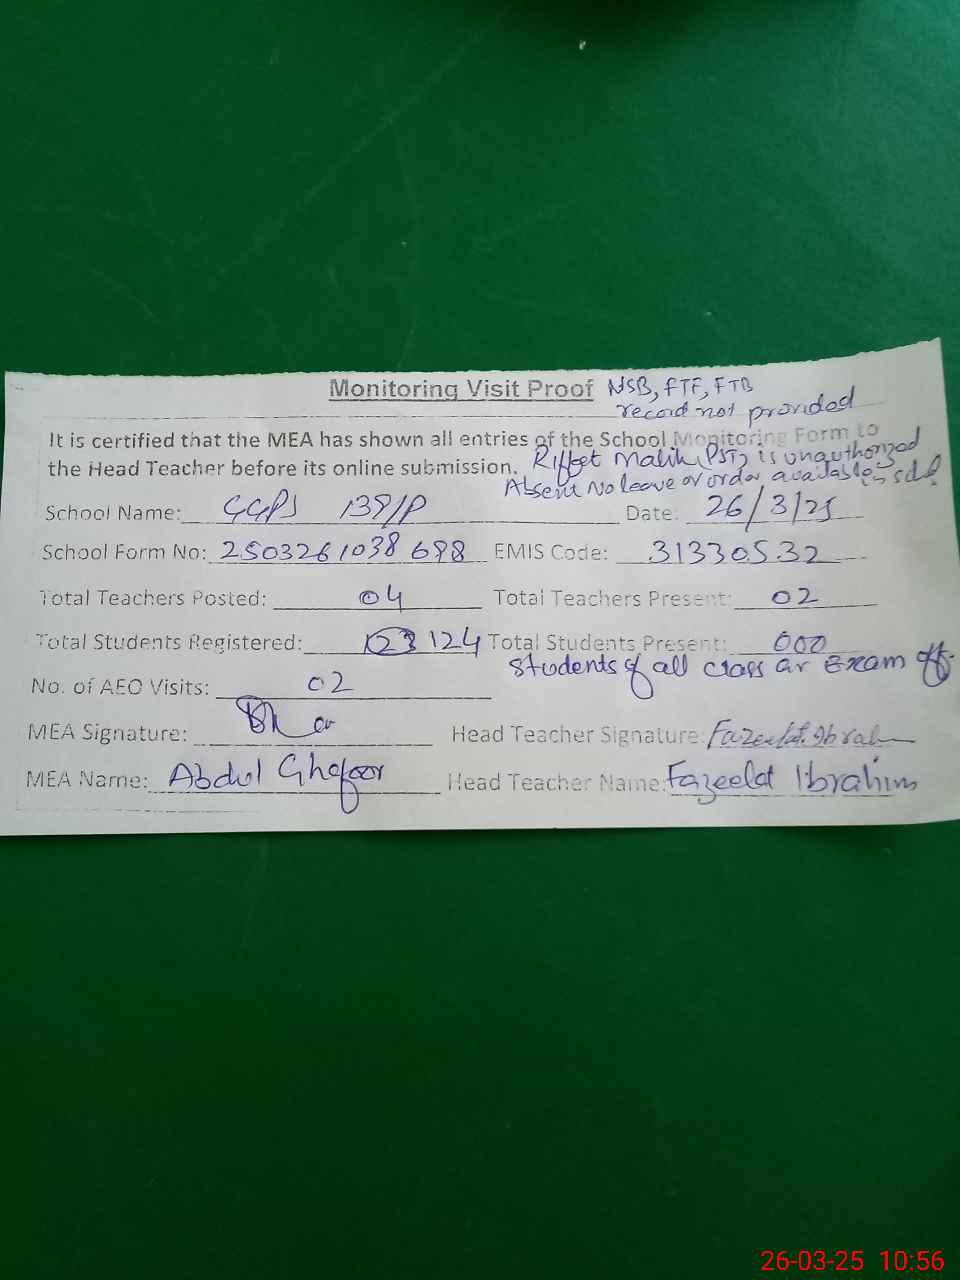 Monitoring Visit Proof NSB, FTF, FTB
record not provided
It is certified that the MEA has shown all entries of the School Monitoring Form to
the Head Teacher before its online submission. Riffet Malik (PST) is unauthorized
Absent No leave or order available in
School Name: GGPS 139/P Date: 26/3/25
School Form No: 2503261038698 EMIS Code: 31330532
Total Teachers Posted: 04 Total Teachers Present: 02
Total Students Registered: 123 124 Total Students Present: 000
Students of all class ar Exam off.
No. of AEO Visits: 02
MEA Signature: Head Teacher Signature: Fazeelat Ibrahim
MEA Name: Abdul Ghafoor Head Teacher Name: Fazeelat Ibrahim
26-03-25 10:56